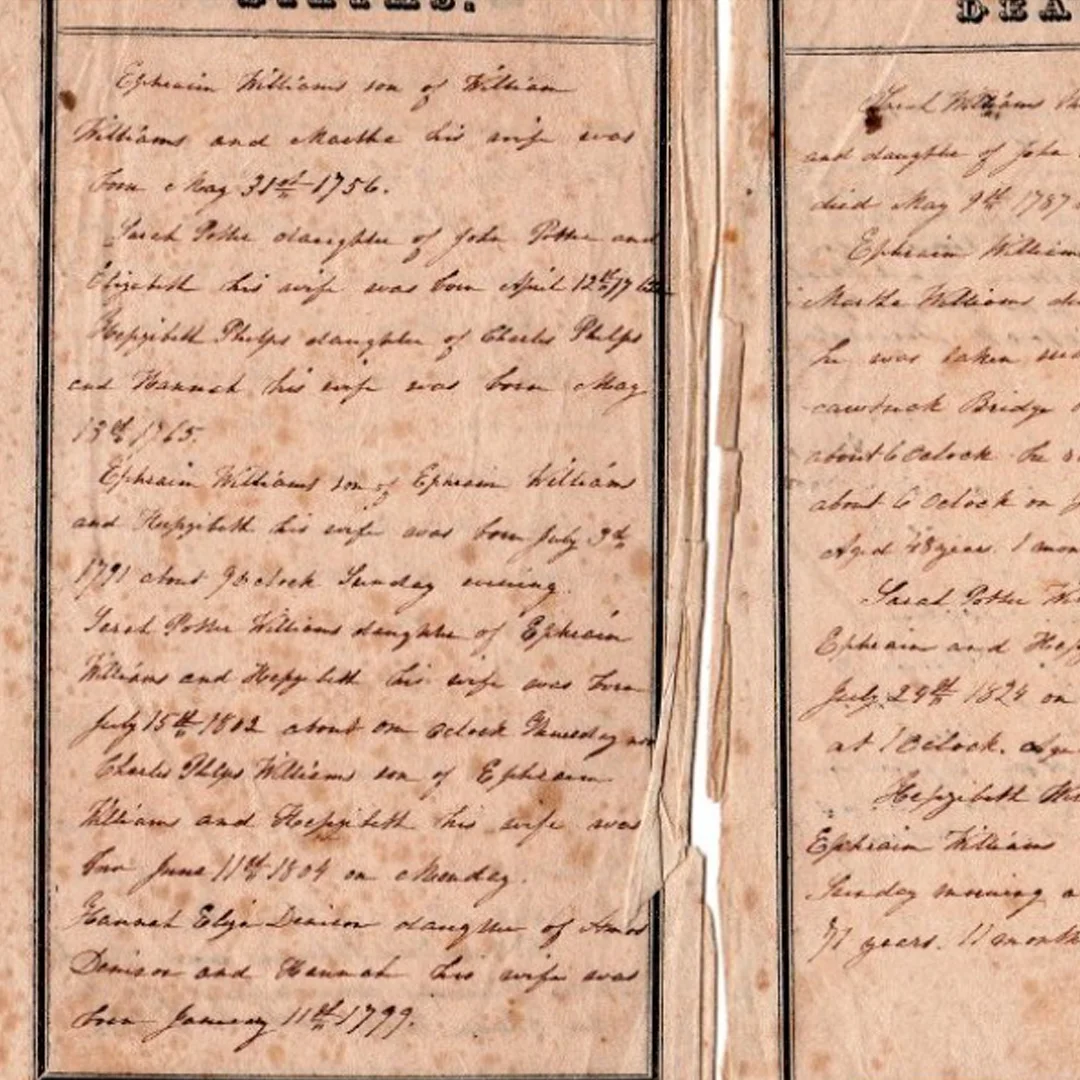 BIRTHS.
Ephraim Williams son of William
Williams and Martha his wife was
born May 31st 1756.
Sarah Potter daughter of John Potter and
Elizabeth his wife was born April 12th
Hepzibeth Phelps daughter of Charles Phelps
and Hannah his wife was born May
13th 1765.
Ephraim Williams son of Ephraim Williams
and Hepzibeth his wife was born July 3d
1791 about 9 oclock Sunday evening.
Sarah Potter Williams daughter of Ephraim
Williams and Hepzibeth his wife was born
July 15th 1802 about one oclock Thursday
Charles Phlps Williams son of Ephraim
Williams and Hepzibeth his wife was
born June 11th 1804 on Monday.
Hannah Eliza Denison daughter of Amos
Denison and Hannah his wife was
born January 11th 1799.
DEA
Sarah Williams
and daughter of John
died May 9th 1787
Ephraim Williams
Martha Williams
he was taken
cawtuck Bridge
about 6 Oclock he
about 6 Oclock on
Aged 48 years. 1 mon
Sarah Potter
Ephraim and Hepz
July 29th 1824 on
at 1 Oclock.
Hepzibeth
Ephraim Williams
Sunday morning
71 years. 11 month